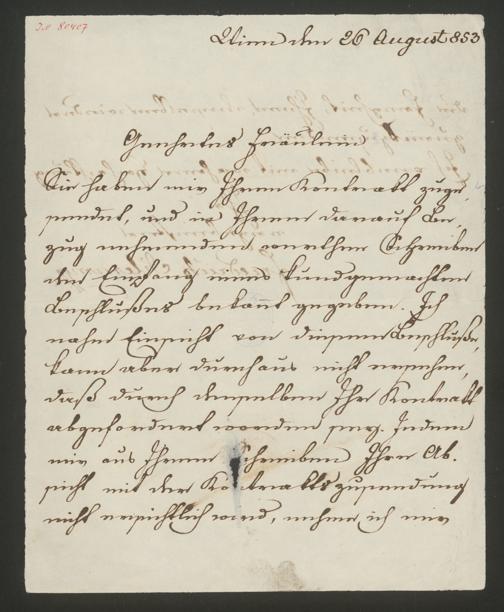 I.N. 80407
Wien den 26 August 853
Geehrtes Fräulein
Sie haben mir Ihren Kontrakt zuge-
sendet, und in Ihrem darauf Be-
zug nehmenden werthen Schreiben
den Empfang eines kundgemachten
Beschlußes bekant gegeben. Ich
nahm Einsicht von diesem Beschluße,
kann aber durchaus nicht ersehen,
daß durch denselben Ihr Kontrakt
abgefordert worden sey. Indem
mir aus Ihrem Schreiben Ihre Ab-
sicht mit der Kontraktszusendung
nicht ersichtlich wird, nehme ich mir